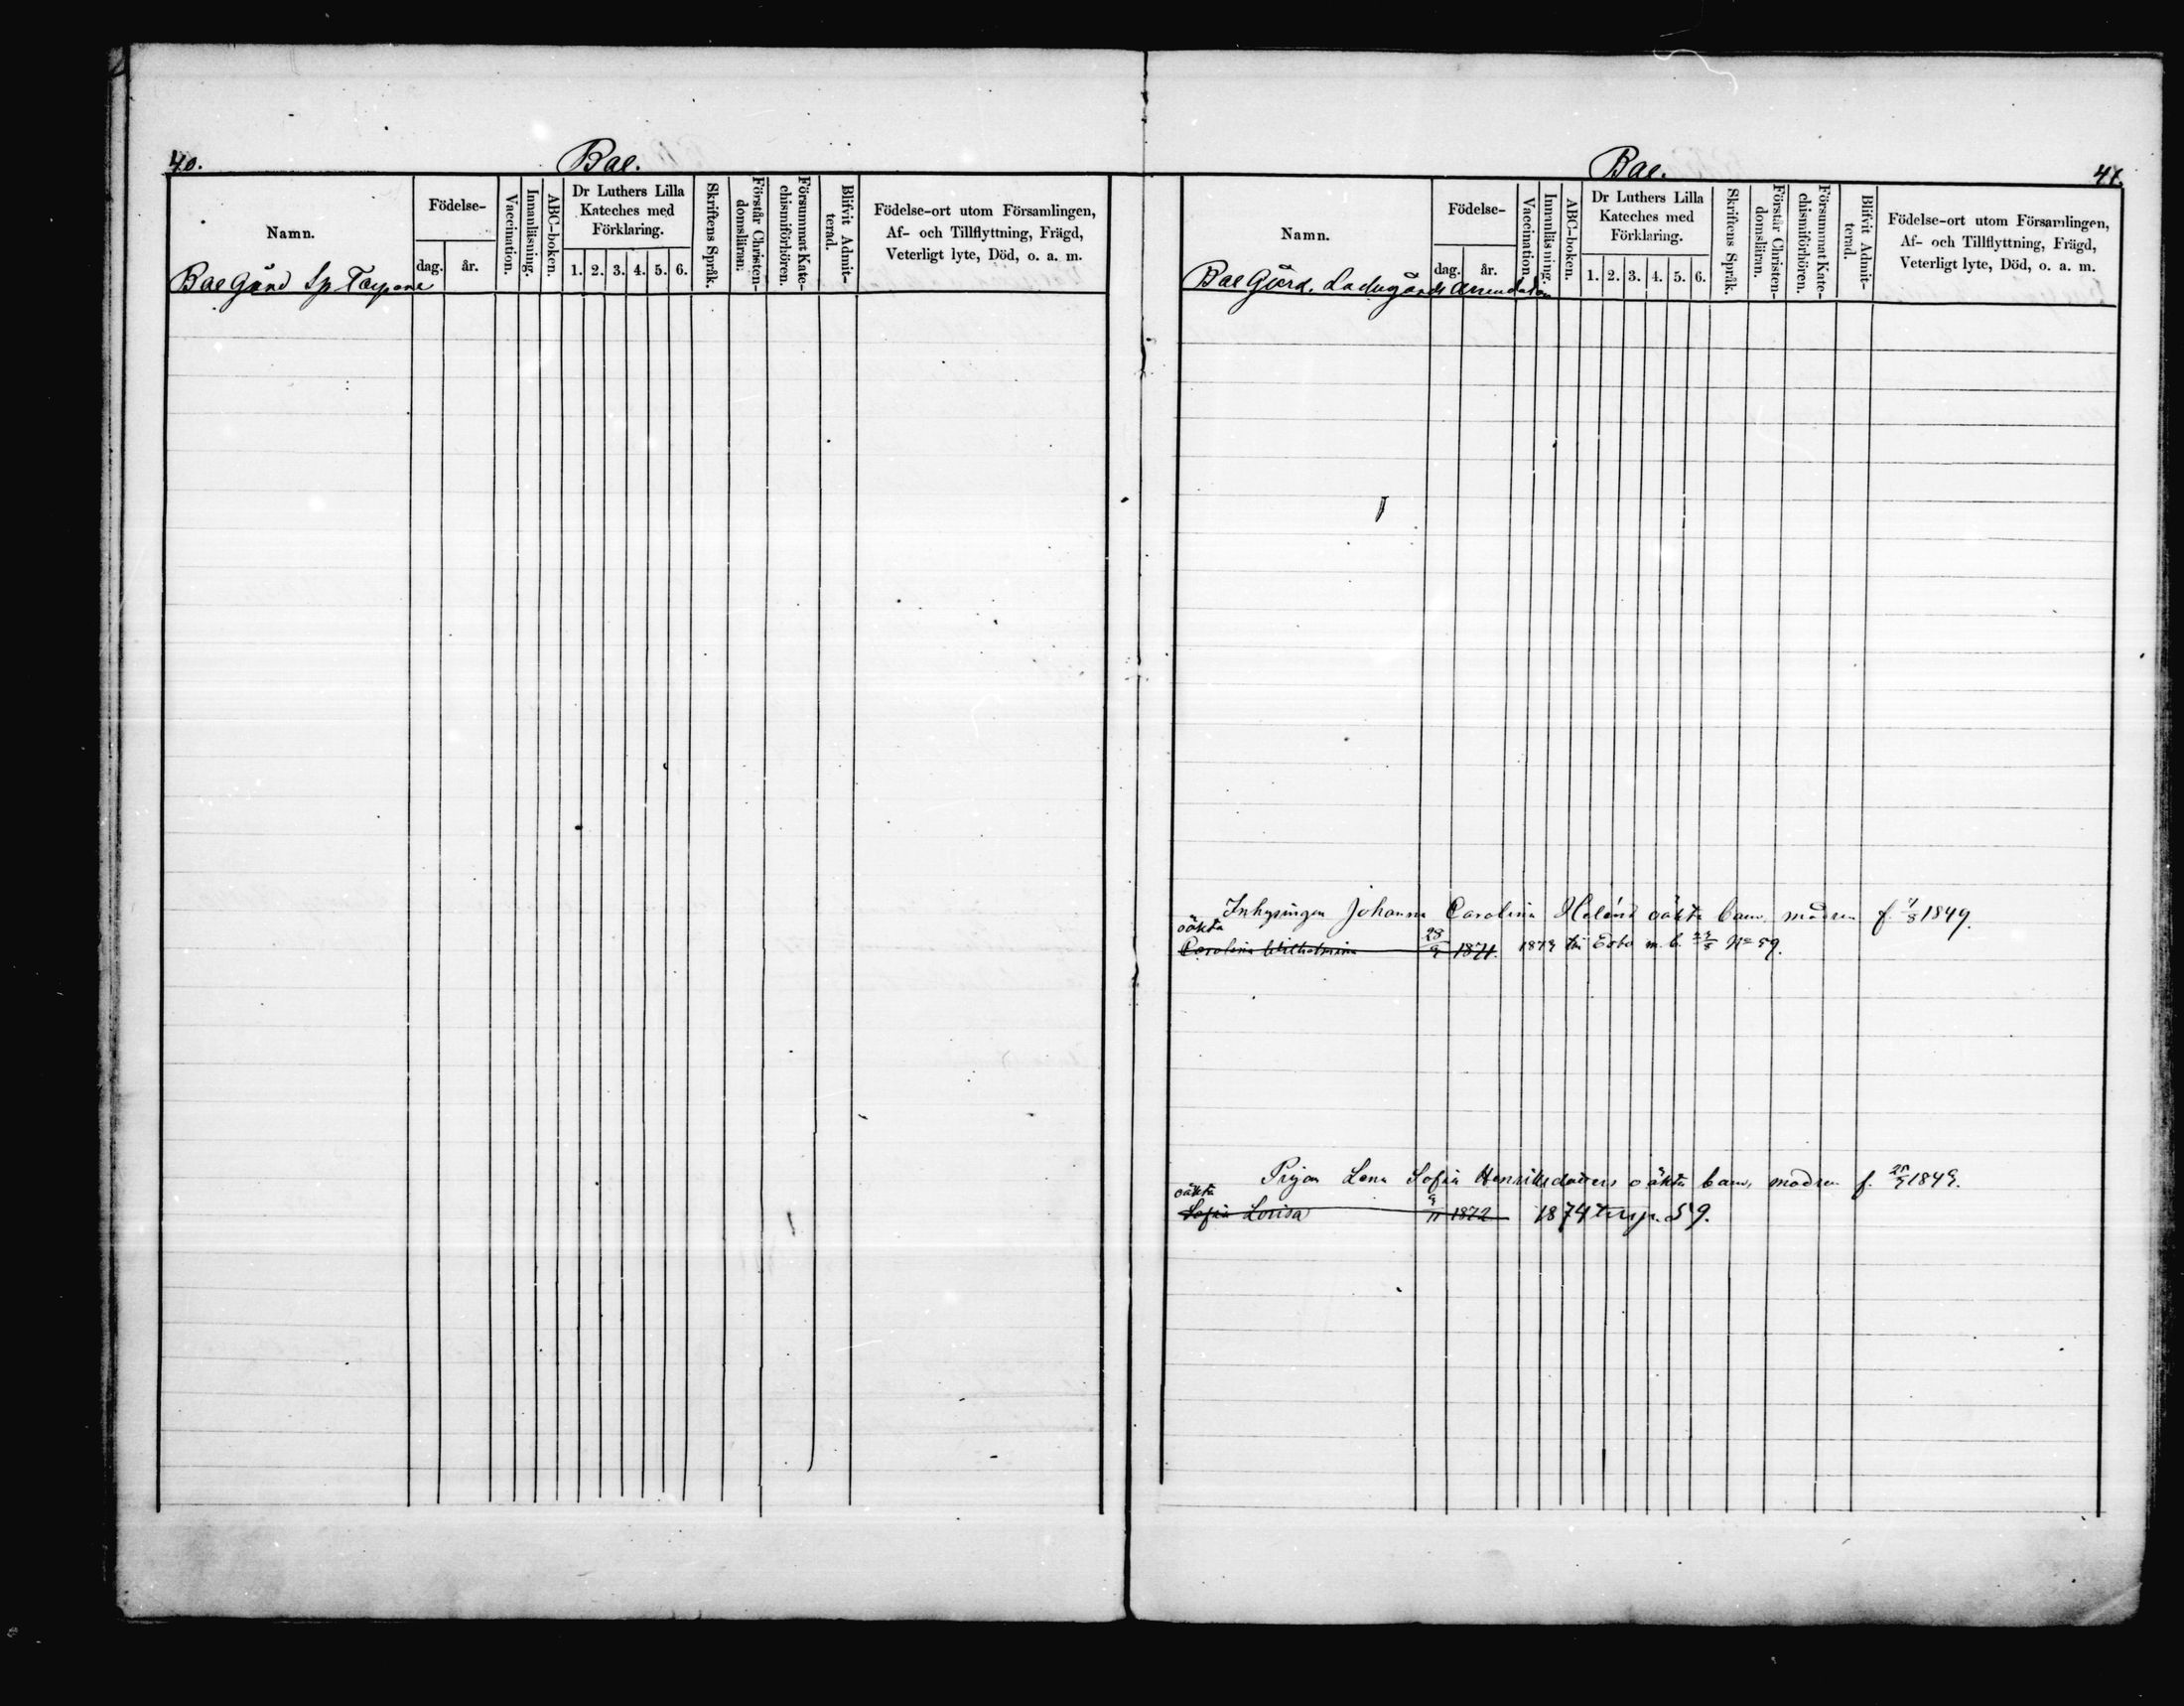 40.
Bae.
Namn.
Födelse-
dag.
år.
Vaccination.
Innanläsning.
ABC-boken.
Dr Luthers Lilla
Kateches med
Förklaring.
1. 2. 3. 4. 5. 6.
Skriftens Språk.
Förstår Christen-
domsläran.
Försummat Kate-
chismiförhören.
Blifvit Admit-
terad.
Födelse-ort utom Församlingen,
Af- och Tillflyttning, Frägd,
Veterligt lyte, Död, o. a. m.
Bae Gård Sp.
Bae.
41.
Namn.
Födelse-
dag.
år.
Vaccination.
Innanläsning.
ABC-boken.
Dr Luthers Lilla
Kateches med
Förklaring.
1. 2. 3. 4. 5. 6.
Skriftens Språk.
Förstår Christen-
domsläran.
Försummat Kate-
chismiförhören.
Blifvit Admit-
terad.
Födelse-ort utom Församlingen,
Af- och Tillflyttning, Frägd,
Veterligt lyte, Död, o. a. m.
Bae Gård. Ladugårds Arrendator
Inhysingen Johanna Carolina oäkta barn, modren f. 1849.
oäkta
Carolina Wilhelmina 28/9 1871. till Esbo m. b. No 59.
Pigan Lena Sofia Henriksdotters oäkta barn, modren f. 1849.
oäkta
Sofia Lovisa 9/11 1872 1874 p. 59.